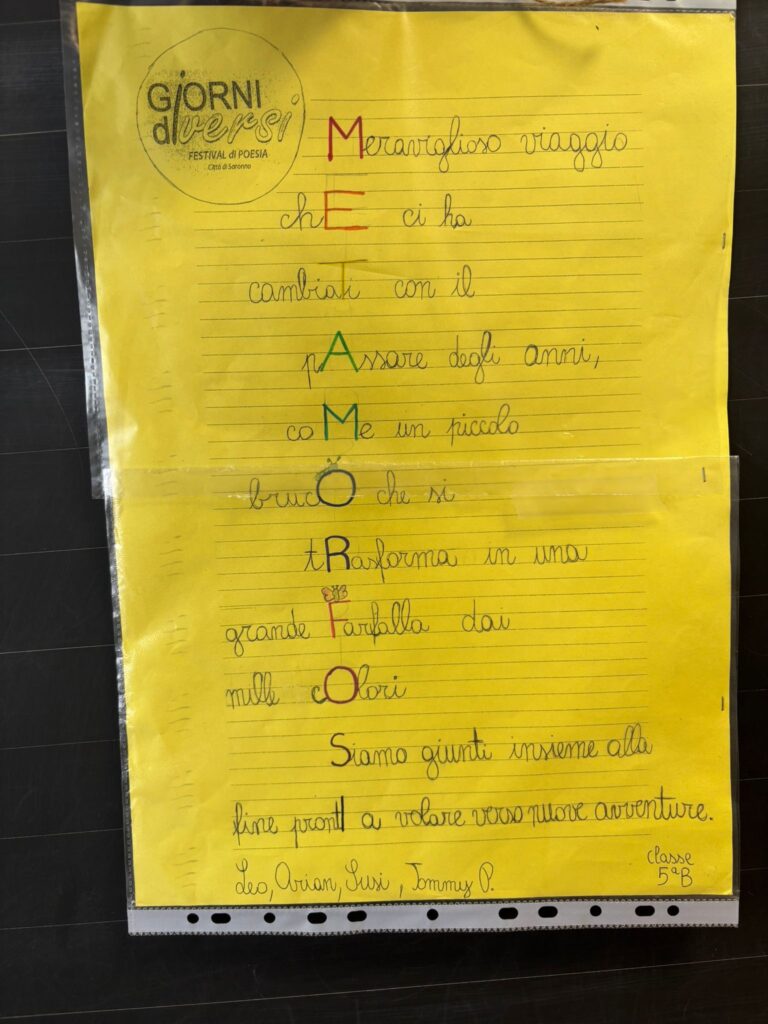 GiORNI
diversi
FESTIVAL di POESIA
Città di Saronno
Meraviglioso viaggio
chE ci ha
cambiaTi con il
pAssare degli anni,
coMe un piccolo
brucO che si
tRasforma in una
grande Farfalla dai
mille cOlori
Siamo giunti insieme alla
fine prontI a volare verso nuove avventure.
Leo, Arian, Susi, Tommy P.
classe
5ªB